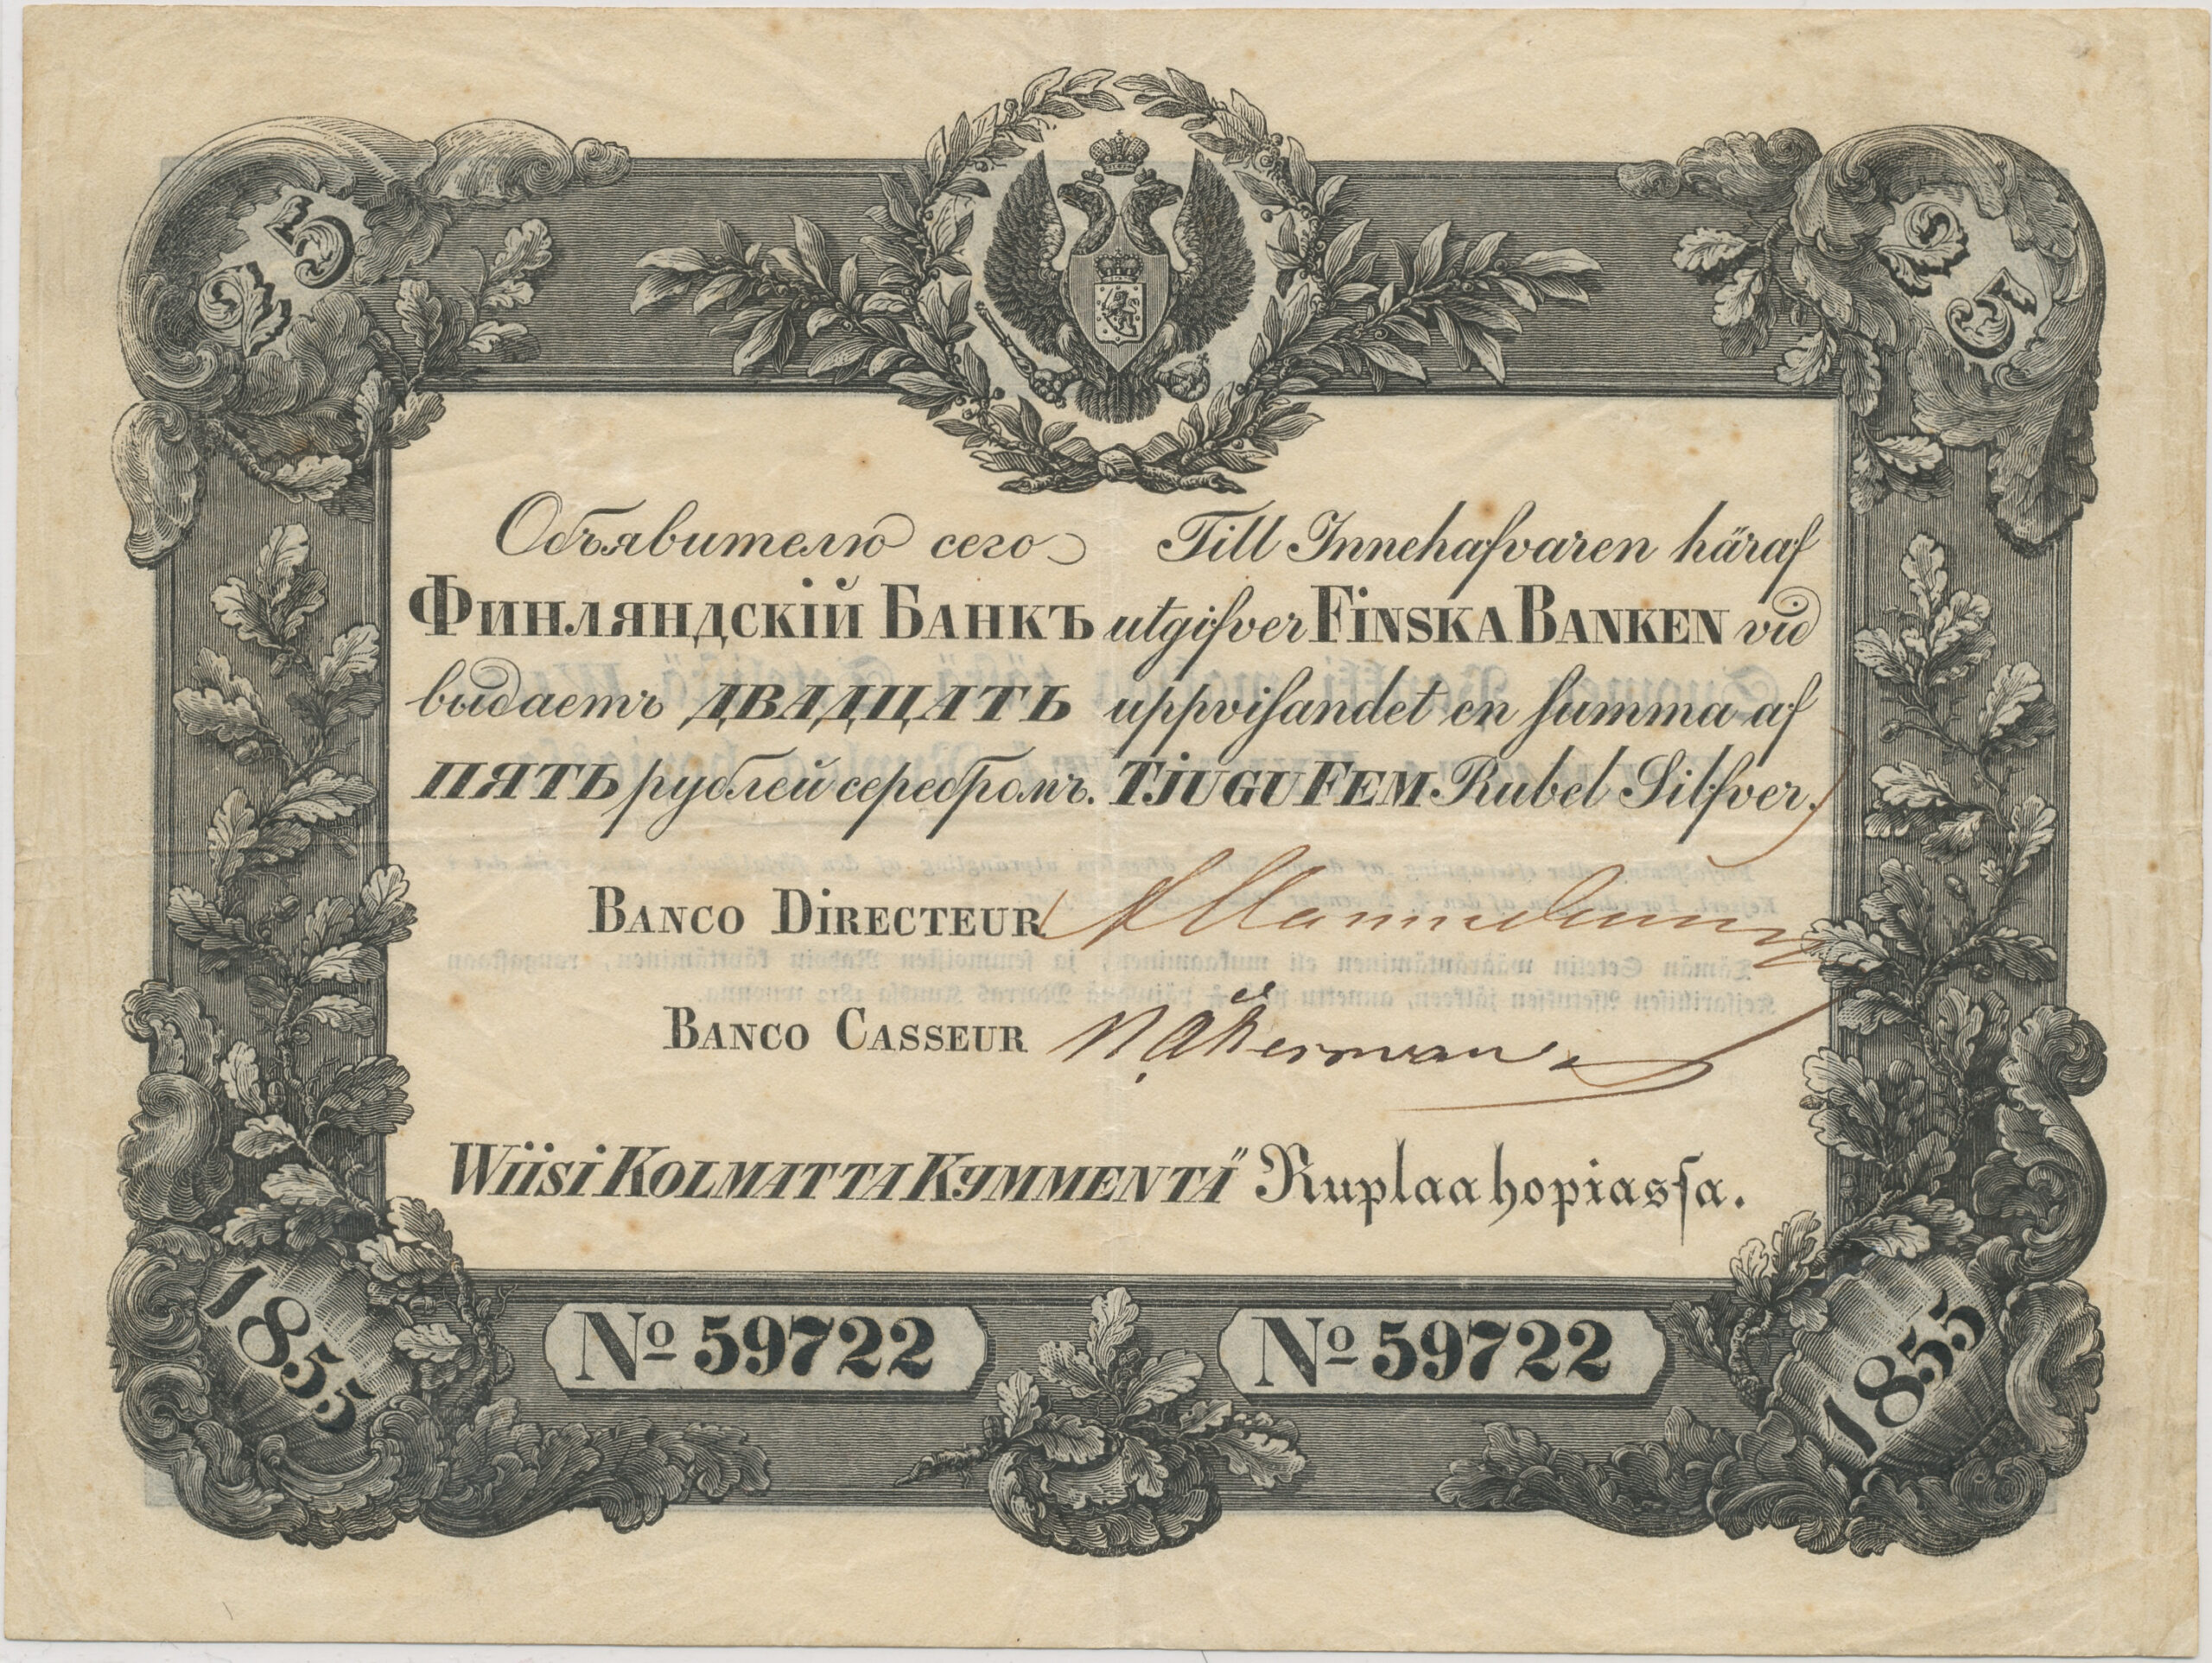 25
25
Объявителю сего
ФИНЛЯНДСКІЙ БАНКЪ
выдаетъ ДВАДЦАТЬ
ПЯТЬ рублей серебромъ.
Till Innehafvaren häraf
utgifver FINSKA BANKEN vid
uppvisandet en summa af
TJUGU FEM Rubel Silfver.
BANCO DIRECTEUR
BANCO CASSEUR N. Åkerman
WIISI KOLMATTA KYMMENTÄ Ruplaa hopiassa.
1855
No 59722
No 59722
1855